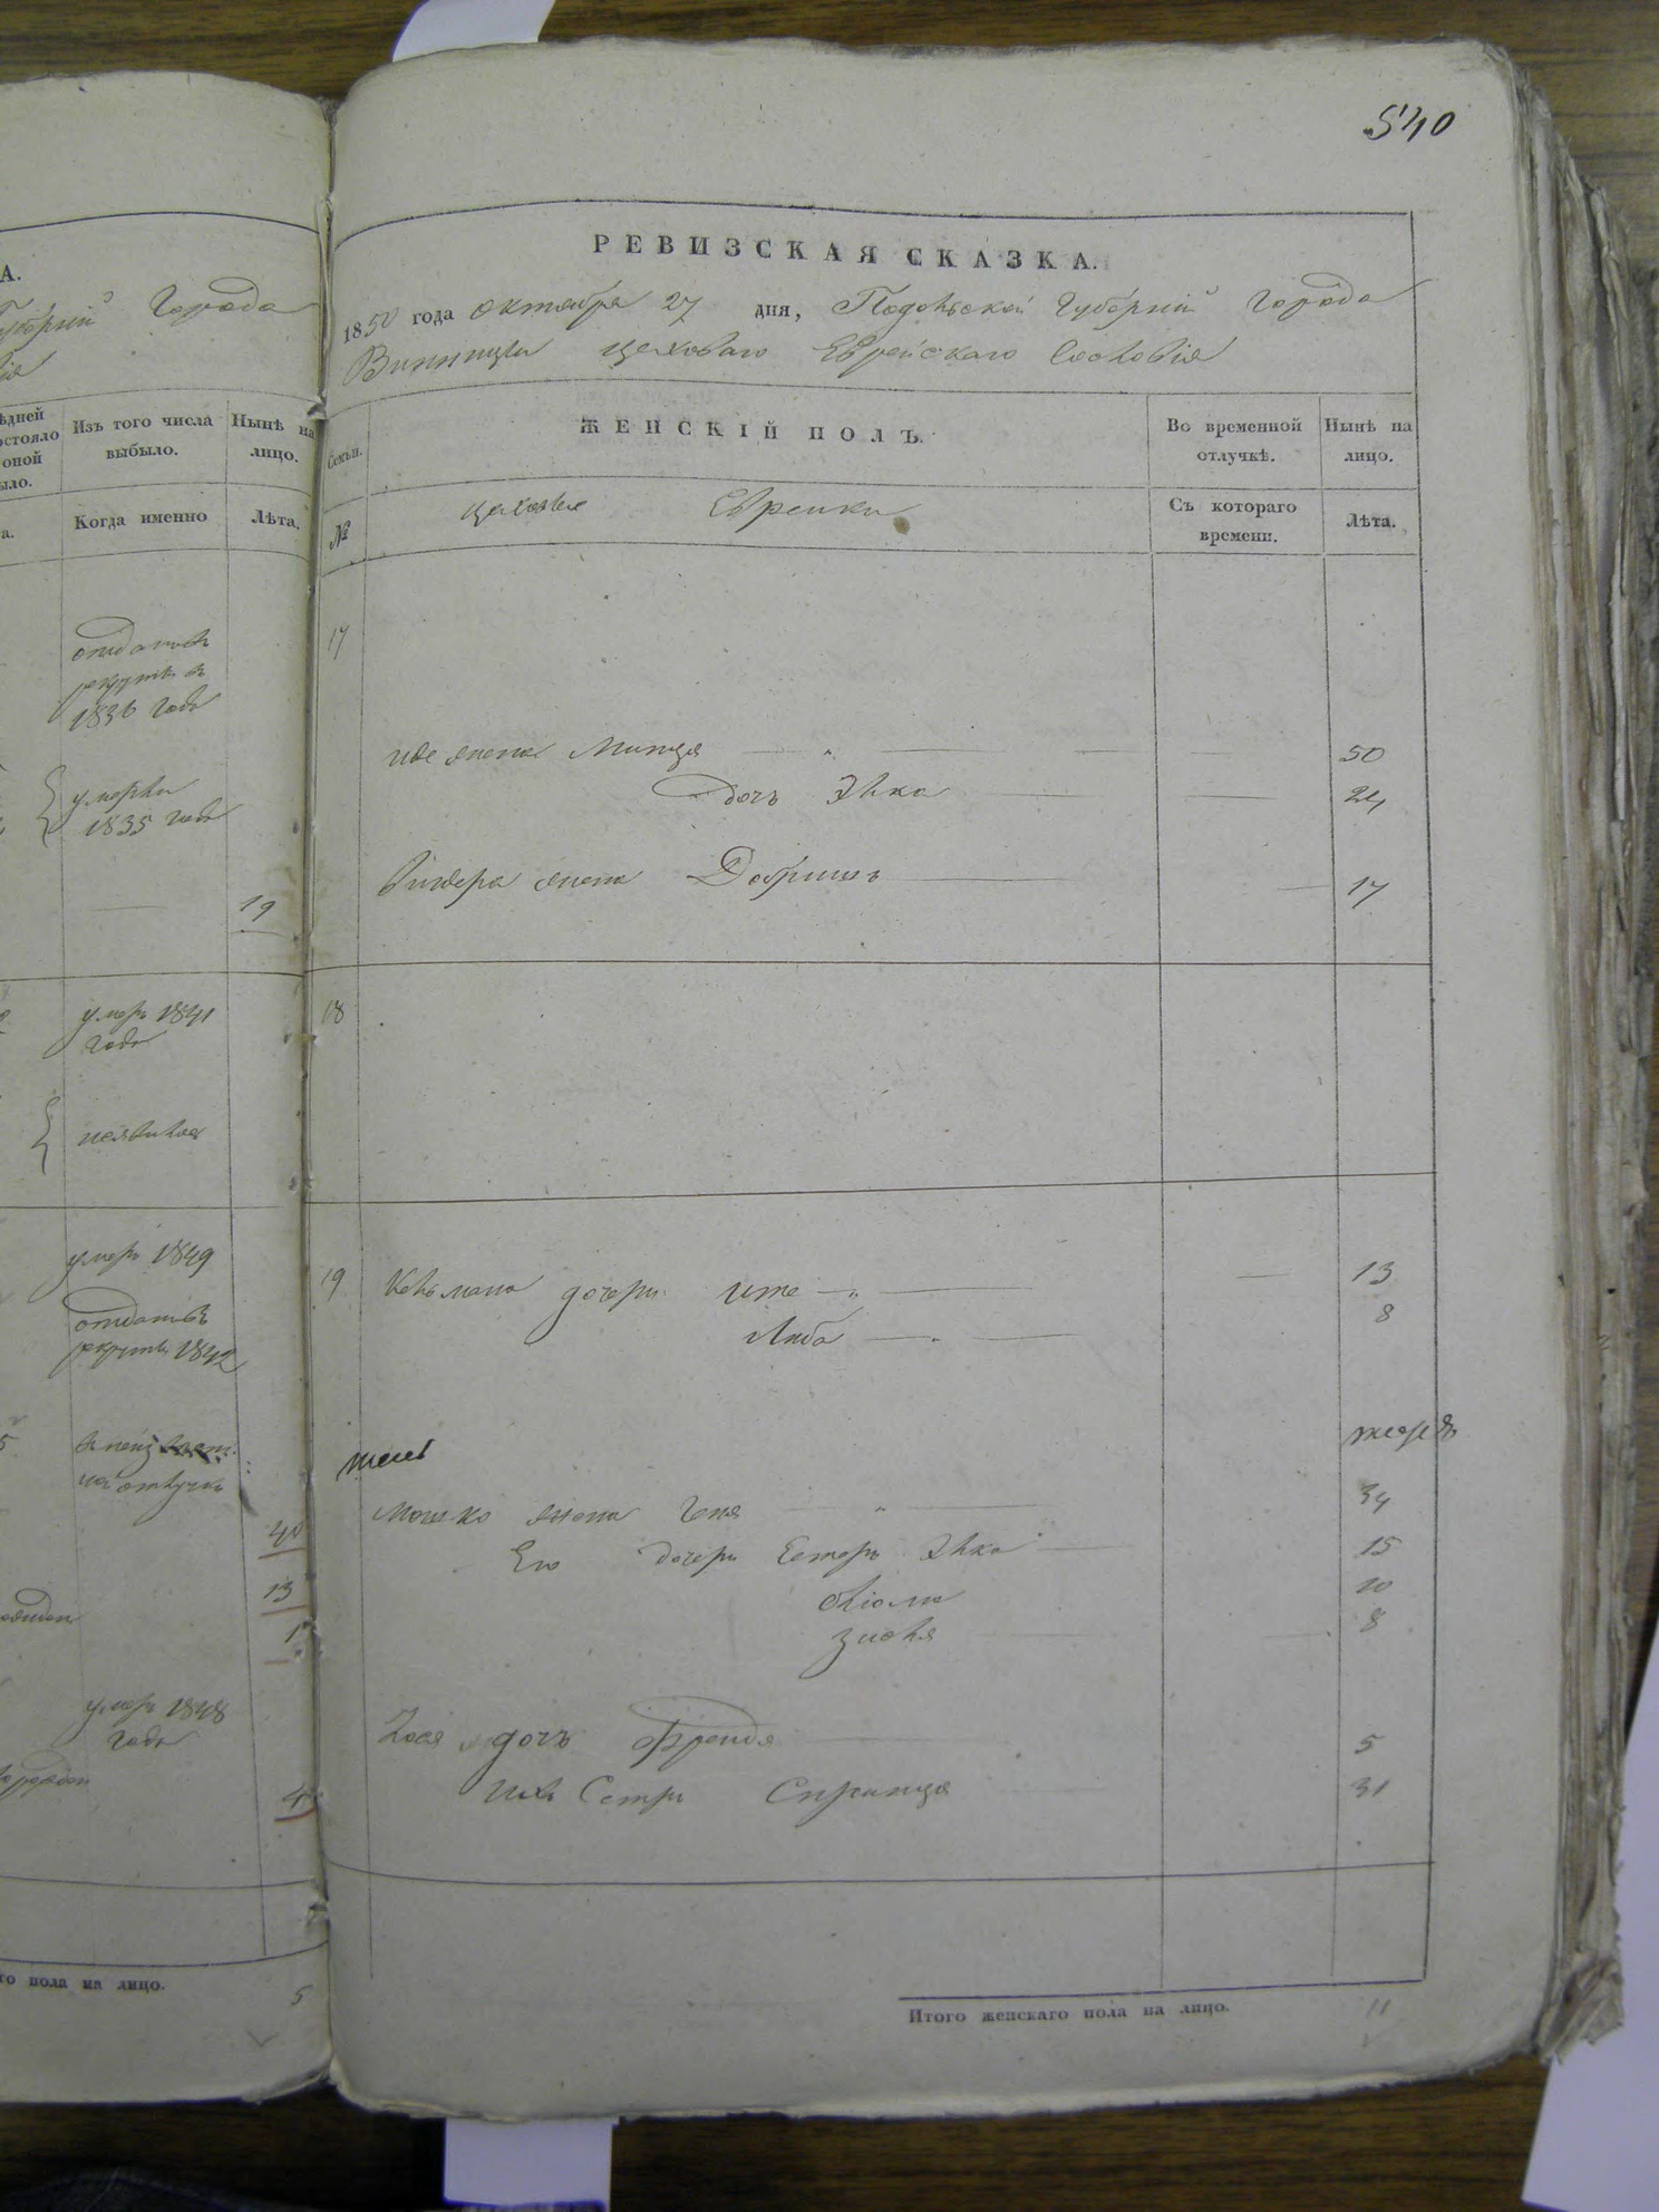 А.
Губернии Города
ѣдней
остояло
оной
ыло.
Изъ того числа
выбыло.
Нынѣ на
лицо.
а.
Когда именно
Лѣта.
отдатъ въ
рекруты въ
1836 годе
умерли
1835 годе
19
умеръ 1841
годе
неявился
умеръ 1849
отданъ въ
рекруты 1842
отлучке
40
13
1
умеръ 1848
годе
4
го пола на лицо.
5
540
РЕВИЗСКАЯ СКАЗКА.
1850 года октября 27 дня, Подольской Губернии Города
Винницы цеховаго Еврейскаго Сословія
Семьи.
ЖЕНСКІЙ ПОЛЪ.
Во временной
отлучкѣ.
Нынѣ на
лицо.
№
цеховые Еврейки
Съ котораго
времени.
Лѣта.
17
жена Минця 50
дочь Элка 24
жена Добришъ 17
18
19 Кельмана дочери Ите 13
Либа 8
Мошко жена Геня 34
Его дочери Естеръ Элка 15
10
Зисля 8
дочь Фрейда 5
Ихъ СестраСпринця 31
Итого женскаго пола на лицо.
11